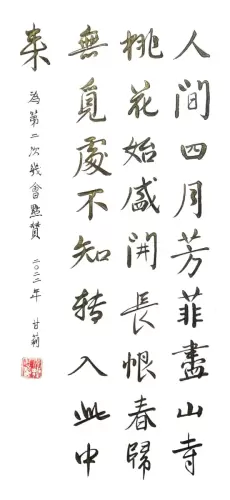 人間四月芳菲盡山寺
桃花始盛開長恨春歸
無覓處不知轉入此中
來
為第二次戰會點贊
二〇二二年 甘莉